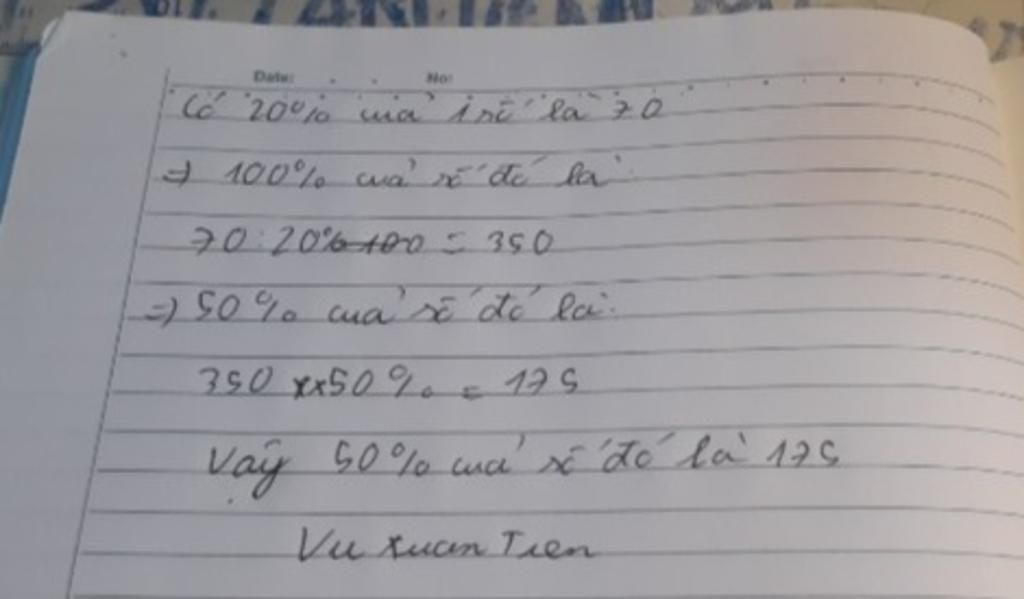 Date: No:
Có 20% của 1 số là 70
=> 100% của số đó là
70 : 20% 100 = 350
=> 50% của số đó là:
350 xx50% = 175
Vậy 50% của số đó là 175
Vu Xuan Tien